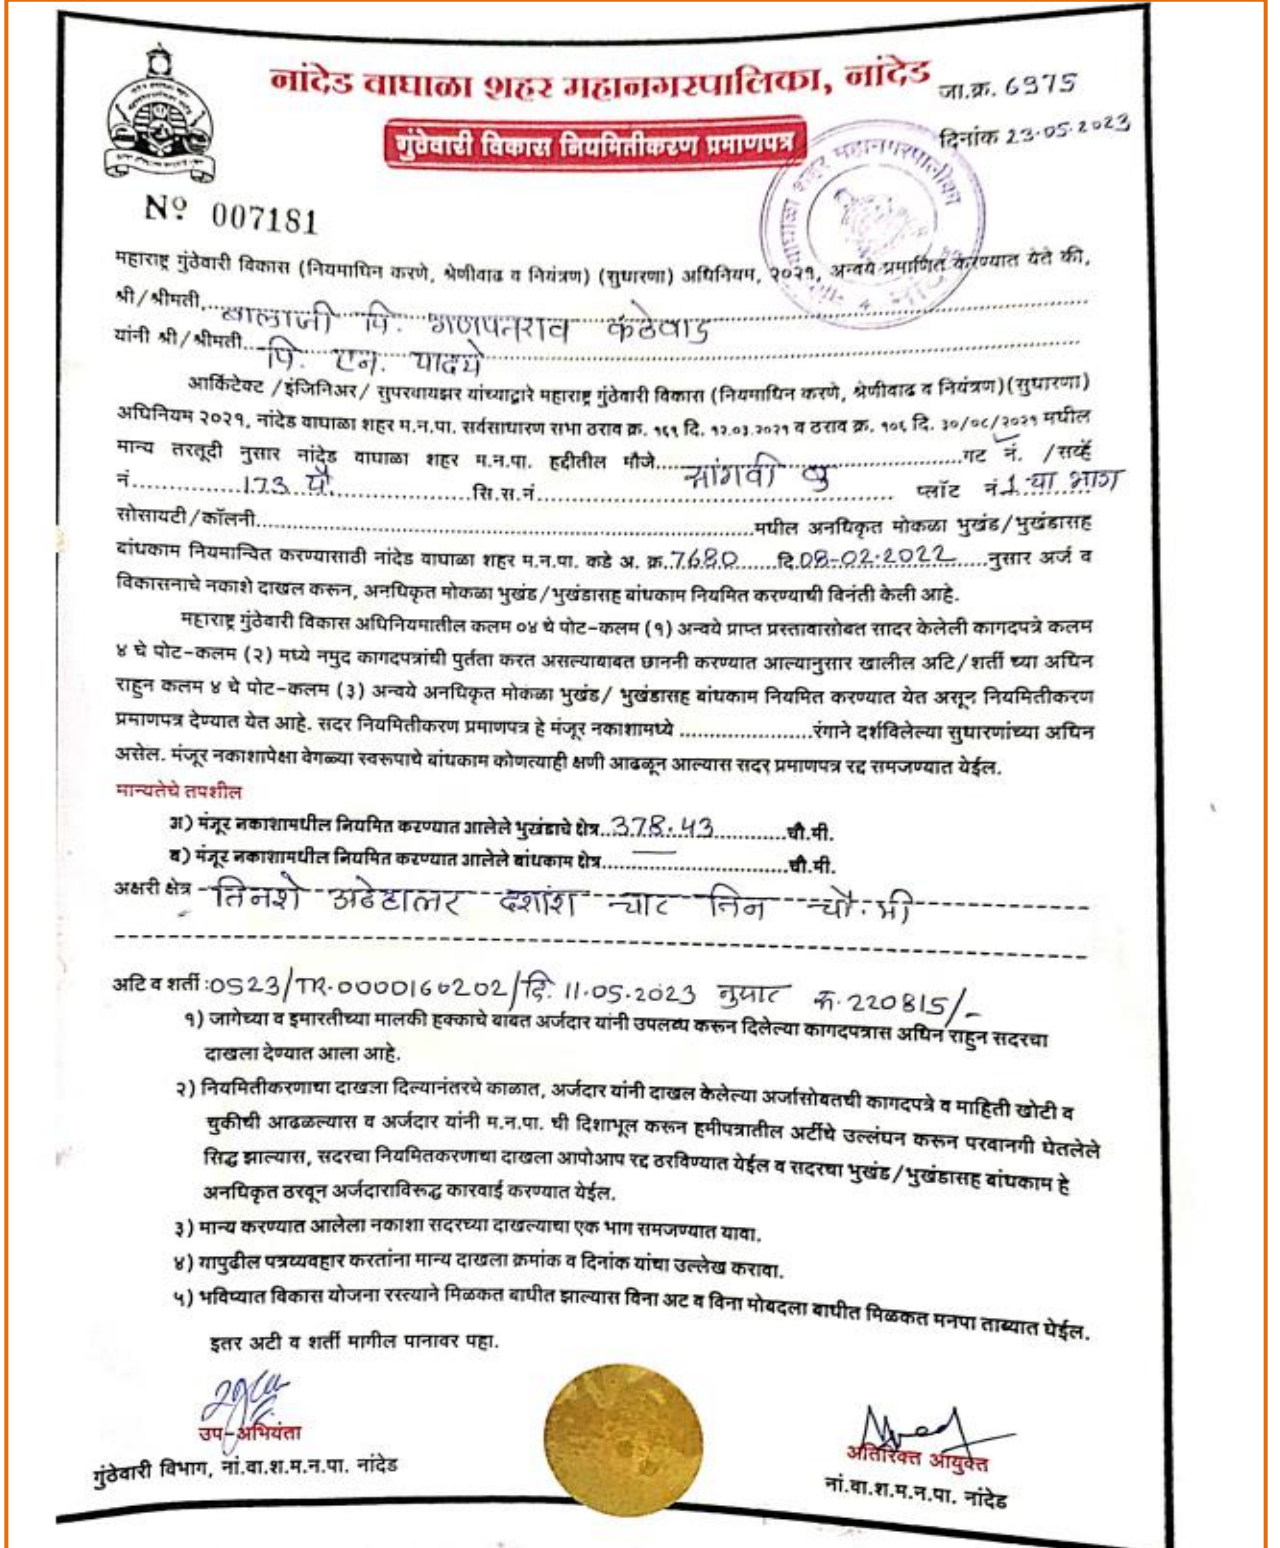 नांदेड वाघाळा शहर महानगरपालिका, नांदेड
जा.क्र. 6975
गुंठेवारी विकास नियमितीकरण प्रमाणपत्र
दिनांक 23.05.2023
Nº 007181
महाराष्ट्र गुंठेवारी विकास (नियमाधिन करणे, श्रेणीवाढ व नियंत्रण) (सुधारणा) अधिनियम, २०२१, अन्वये प्रमाणित करण्यात येते की,
श्री/श्रीमती, बालाजी पि. गणपतराव कंठेवाड
यांनी श्री/श्रीमती पि. एन. यादये
आर्किटेक्ट /इंजिनिअर/ सुपरवायझर यांच्याद्वारे महाराष्ट्र गुंठेवारी विकास (नियमाधिन करणे, श्रेणीवाढ व नियंत्रण)(सुधारणा)
अधिनियम २०२१, नांदेड वाघाळा शहर म.न.पा. सर्वसाधारण सभा ठराव क्र. १६९ दि. १२.०३.२०२१ व ठराव क्र. १०६ दि. ३०/०८/२०२१ मधील
मान्य तरतूदी नुसार नांदेड वाघाळा शहर म.न.पा. हद्दीतील मौजे सांगवी बु गट नं. /सर्व्हे
नं. 173 पै. सि.स.नं. प्लॉट नं. 1 चा भाग
सोसायटी/कॉलनी मधील अनधिकृत मोकळा भुखंड/भुखंडासह
बांधकाम नियमान्वित करण्यासाठी नांदेड वाघाळा शहर म.न.पा. कडे अ. क्र. 7680 दि. 08-02-2022 नुसार अर्ज व
विकासनाचे नकाशे दाखल करून, अनधिकृत मोकळा भुखंड/भुखंडासह बांधकाम नियमित करण्याची विनंती केली आहे.
महाराष्ट्र गुंठेवारी विकास अधिनियमातील कलम ०४ चे पोट-कलम (१) अन्वये प्राप्त प्रस्तावासोबत सादर केलेली कागदपत्रे कलम
४ चे पोट-कलम (२) मध्ये नमुद कागदपत्रांची पुर्तता करत असल्याबाबत छाननी करण्यात आल्यानुसार खालील अटि/शर्ती च्या अधिन
राहुन कलम ४ चे पोट-कलम (३) अन्वये अनधिकृत मोकळा भुखंड/ भुखंडासह बांधकाम नियमित करण्यात येत असून नियमितीकरण
प्रमाणपत्र देण्यात येत आहे. सदर नियमितीकरण प्रमाणपत्र हे मंजूर नकाशामध्ये ....................रंगाने दर्शविलेल्या सुधारणांच्या अधिन
असेल. मंजूर नकाशापेक्षा वेगळ्या स्वरूपाचे बांधकाम कोणत्याही क्षणी आढळून आल्यास सदर प्रमाणपत्र रद्द समजण्यात येईल.
मान्यतेचे तपशील
अ) मंजूर नकाशामधील नियमित करण्यात आलेले भुखंडाचे क्षेत्र..378.43............चौ.मी.
ब) मंजूर नकाशामधील नियमित करण्यात आलेले बांधकाम क्षेत्र............................चौ.मी.
अक्षरी क्षेत्र - तिनशे अठेहात्तर दशांश चार तिन चौ.मी
अटि व शर्ती :0523/TR-0000160202/दि. 11.05.2023 नुसार रु. 220815/-
१) जागेच्या व इमारतीच्या मालकी हक्काचे बाबत अर्जदार यांनी उपलब्ध करून दिलेल्या कागदपत्रास अधिन राहुन सदरचा
दाखला देण्यात आला आहे.
२) नियमितीकरणाचा दाखला दिल्यानंतरचे काळात, अर्जदार यांनी दाखल केलेल्या अर्जासोबतची कागदपत्रे व माहिती खोटी व
चुकीची आढळल्यास व अर्जदार यांनी म.न.पा. ची दिशाभूल करून हमीपत्रातील अटींचे उल्लंघन करून परवानगी घेतलेले
सिद्ध झाल्यास, सदरचा नियमितकरणाचा दाखला आपोआप रद्द ठरविण्यात येईल व सदरचा भुखंड/भुखंडासह बांधकाम हे
अनधिकृत ठरवून अर्जदाराविरूद्ध कारवाई करण्यात येईल.
३) मान्य करण्यात आलेला नकाशा सदरच्या दाखल्याचा एक भाग समजण्यात यावा.
४) यापुढील पत्रव्यवहार करतांना मान्य दाखला क्रमांक व दिनांक यांचा उल्लेख करावा.
५) भविष्यात विकास योजना रस्त्याने मिळकत बाधीत झाल्यास विना अट व विना मोबदला बाधीत मिळकत मनपा ताब्यात घेईल.
इतर अटी व शर्ती मागील पानावर पहा.
उप-अभियंता
गुंठेवारी विभाग, नां.वा.श.म.न.पा. नांदेड
अतिरिक्त आयुक्त
नां.वा.श.म.न.पा. नांदेड